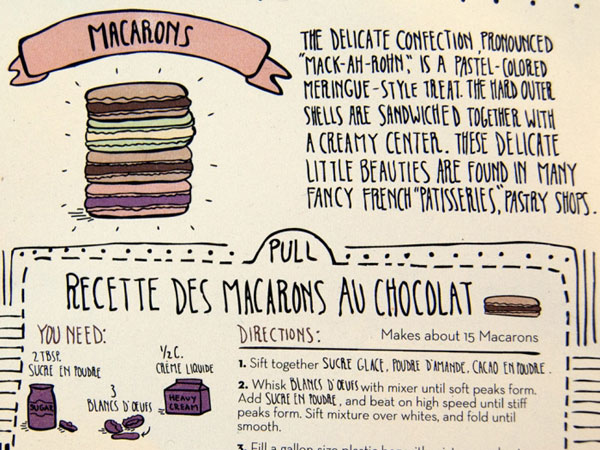 MACARONS
THE DELICATE CONFECTION, PRONOUNCED
"MACK-AH-ROHN," IS A PASTEL-COLORED
MERINGUE-STYLE TREAT. THE HARD OUTER
SHELLS ARE SANDWICHED TOGETHER WITH
A CREAMY CENTER. THESE DELICATE
LITTLE BEAUTIES ARE FOUND IN MANY
FANCY FRENCH "PATISSERIES," PASTRY SHOPS.
PULL
RECETTE DES MACARONS AU CHOCOLAT
YOU NEED:
2 TBSP.
SUCRE EN POUDRE
SUGAR
3
BLANCS D'OEUFS
1/2 C.
CRÈME LIQUIDE
HEAVY
CREAM
DIRECTIONS:
Makes about 15 Macarons
1. Sift together SUCRE GLACE, POUDRE D'AMANDE, CACAO EN POUDRE.
2. Whisk BLANCS D'OEUFS with mixer until soft peaks form.
Add SUCRE EN POUDRE, and beat on high speed until stiff
peaks form. Sift mixture over whites, and fold until
smooth.
3. Fill a gallon size plastic bag with